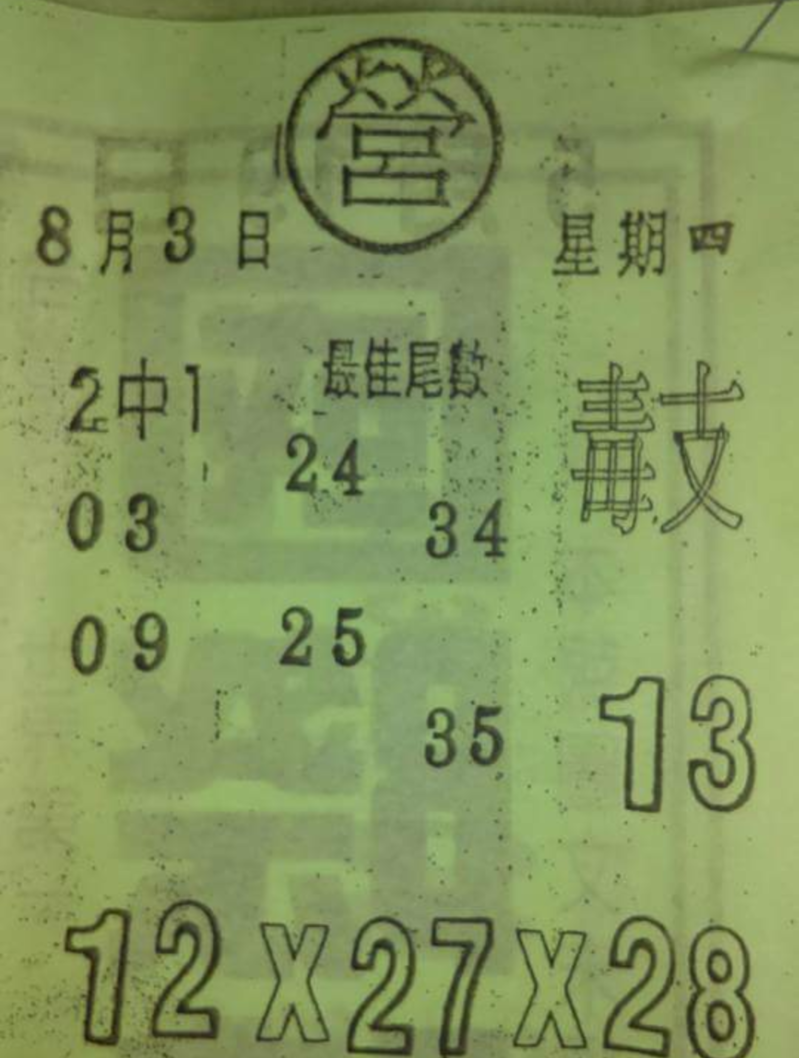 營
8月3日 星期四
2中1 最佳尾數 毒支
24
03 34
09 25
35 13
12 X 27 X 28